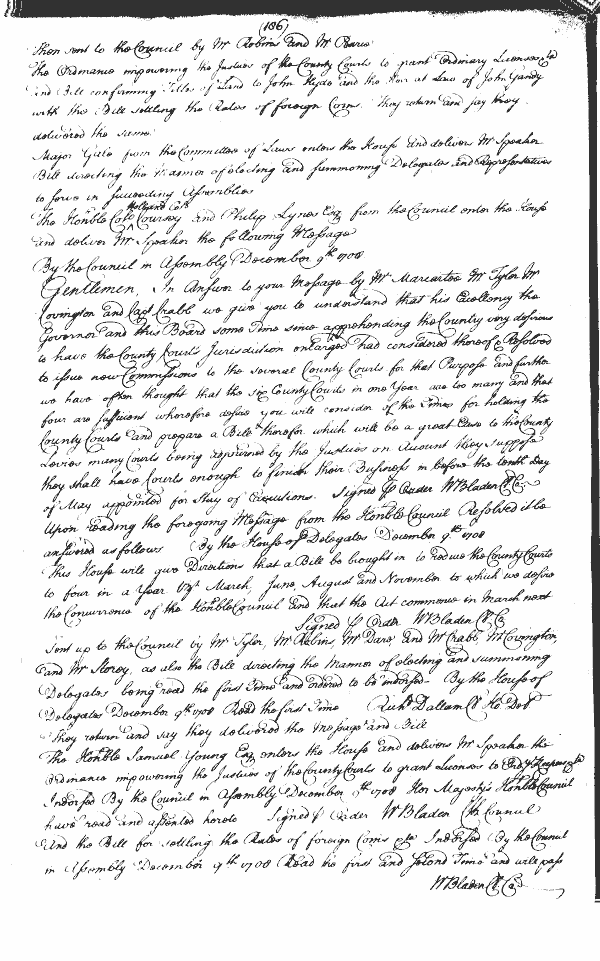 (186)
Then sent to the Council by Mr Robins and Mr Pearce
The Ordinance impowering the Justices of the County Courts to grant Ordinary Licenses &ca
and Bill confirming Titles of Land to John Hyde and the Heir at Law of John Gandy
with the Bill settling the Rates of foreign Coins. They return and say they
delivered the same.
Major Gale from the Committee of Laws enters the House and delivers Mr Speaker
Bill directing the Manner of electing and summoning Delegates and Representatives
to serve in succeeding Assemblies
Holland Coll
The Honble Coll Coursey and Philip Lynes Esq from the Council enter the House
and deliver Mr Speaker the following Message
By the Council in Assembly December 9th 1708
Gentlemen, In Answer to your Message by Mr Macartee Mr Tyler Mr
Covington and Capt Crabb we give you to understand that his Excellency the
Governor and this Board some time since apprehending the Country very desirous
to have the County Court's Jurisdiction enlarged had considered thereof & Resolved
to issue new Commissions to the several County Courts for that Purpose and further
we have often thought that the six County Courts in one Year are too many and that
four are sufficient wherefore desire you will consider of the Times for holding the
County Courts and prepare a Bill therefor which will be a great Ease to the County
Levies many Courts being repaired by the Justices on Account they suppose
they shall have Courts enough to finish their Business in before the tenth Day
of May appointed for Stay of Executions. Signed p Order WBladen Cl. Co.
Upon reading the foregoing Message from the Honble Council Resolved it be
answered as follows By the House of Delegates December 9th 1708
This House will give Directions that a Bill be brought in to reduce the County Courts
to four in a Year Vizt March, June, August and November to which we desire
the Concurrence of the Honble Council and that the Act commence in March next
Signed p Order WBladen Cl. Co
Sent up to the Council by Mr Tyler, Mr Robins, Mr Dare and Mr Crabb, Mr Covington,
and Mr Storey, as also the Bill directing the Manner of electing and summoning
Delegates being read the first Time and ordered to be indorsed By the House of
Delegates December 9th 1708 Read the first Time Richd Dallam Cl Ho. Del
They return and say they delivered the Message and Bill
The Honble Samuel Young Esq enters the House and delivers Mr Speaker the
Ordinance impowering the Justices of the County Courts to grant Licenses to Ordy Keepers &ca
Indorsed By the Council in Assembly December 9th 1708 Her Majesty's Honble Council
have read and assented hereto Signed p Order WBladen Cl Council
And the Bill for settling the Rates of foreign Coins &ca Indorsed By the Council
in Assembly December 9th 1708 Read the first and second Time and will pass
WBladen Cl. Co.